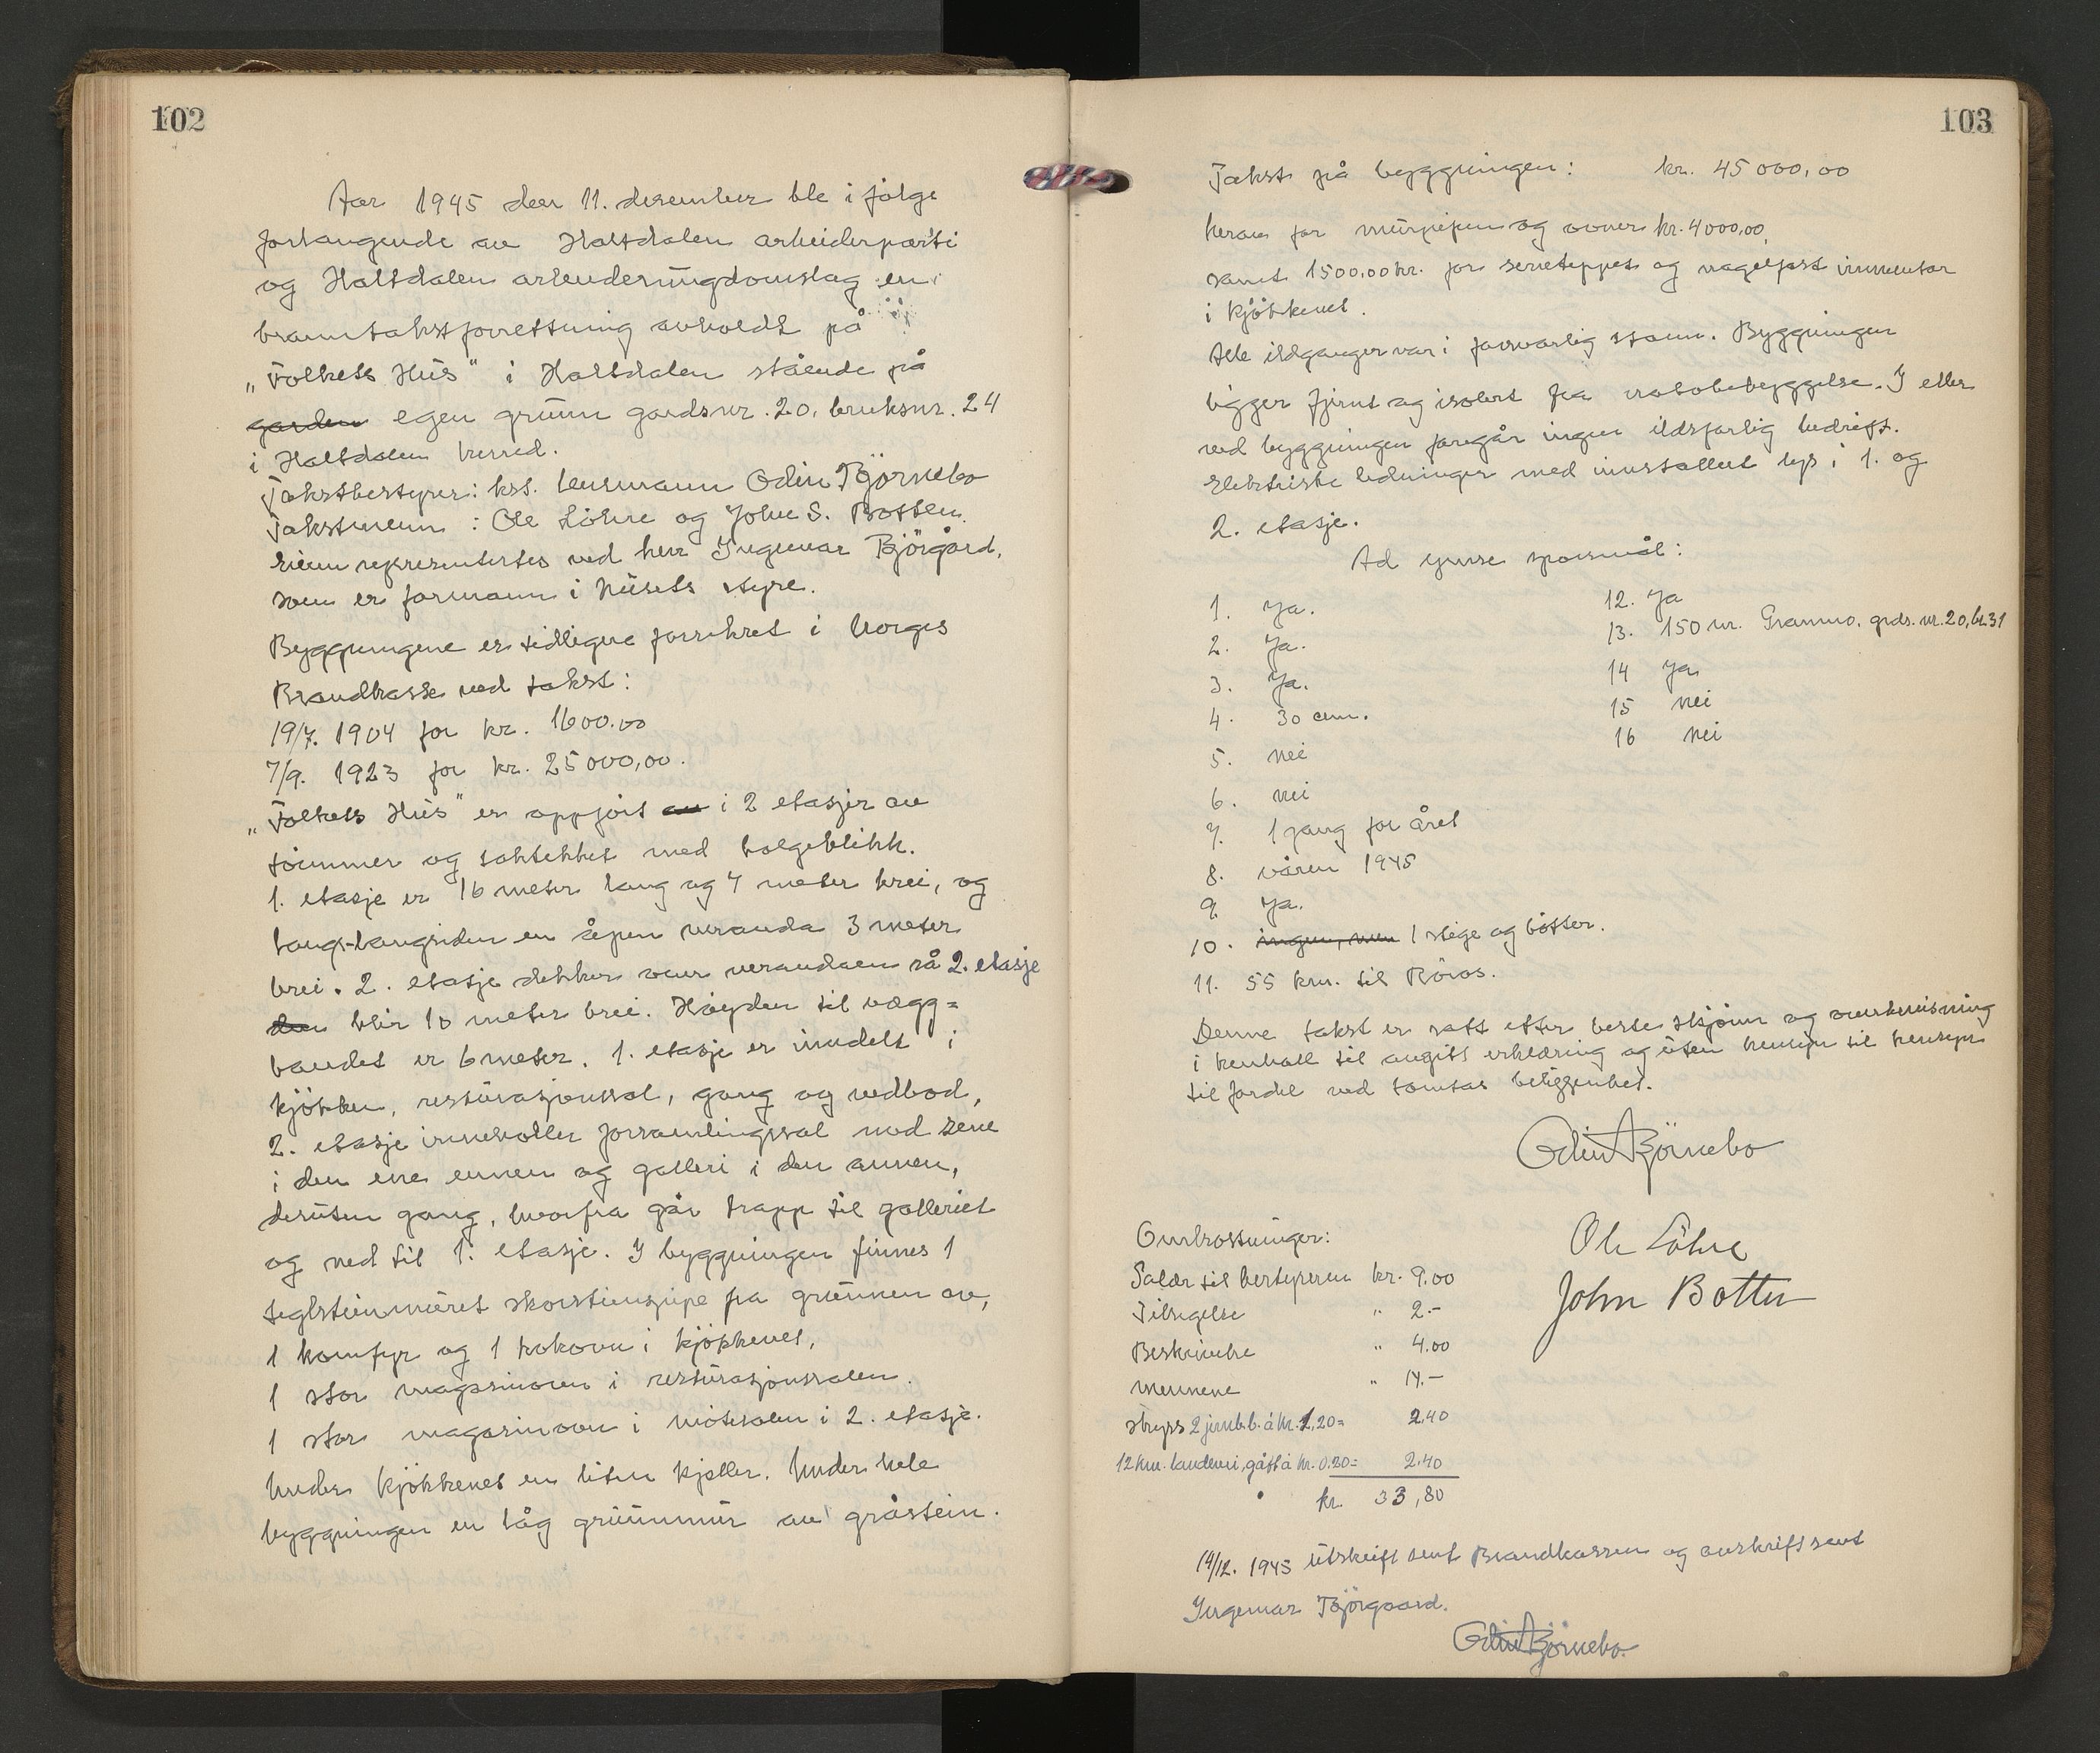 102
Aar 1945 den 11. desember ble i følge
forlangende av Haltdalen arbeiderparti
og Haltdalen arbeiderungdomslag en
branntakstforretning avholdt på
"Folkets Hus" i Haltdalen stående på
garden egen grunn gardsnr. 20, bruksnr. 24
i Haltdalen herred.
Takstbestyrer: kst. lensmann Odin Bjørnebo
Takstmenn: Ole Løhre og John S. Botten.
Eieren representertes ved herr Ingemar Bjørgård,
som er formann i husets styre.
Byggningene er tidligere forsikret i Norges
Brandkasse ved takst:
19/7. 1904 for kr. 1600.00
7/9. 1923 for kr. 25000,00.
"Folkets Hus" er oppført av i 2 etasjer av
tømmer og taktekket med bølgeblikk.
1. etasje er 16 meter lang og 7 meter brei, og
langs langsiden en åpen veranda 3 meter
brei. 2. etasje dekker over verandaen så 2. etasje
den blir 10 meter brei. Høyden til vegg=
båndet er 6 meter. 1. etasje er inndelt i
kjøkken, resturasjonssal, gang og vedbod,
2. etasje inneholder forsamlingssal med sene
i den ene ennen og galleri i den annen,
desuten gang, hvorfra går trapp til galleriet
og ned til 1. etasje. I byggningen finnes 1
teglsteinmuret skorsteinspipe fra grunnen av,
1 komfyr og 1 kokovn i kjøkkenet,
1 stor magasinovn i resturasjonssalen.
1 stor magasinovn i møtesalen i 2. etasje.
Under kjøkkenet en liten kjeller. Under hele
byggningen en låg grunnmur av gråstein.
103
Takst på byggningen: kr. 45000,00
herav for murpipen og ovner kr. 4000,00,
samt 1500,00 kr. for seneteppet og nagelfast inventar
i kjøkkenet.
Alle ildganger var i forsvarlig stann. Byggningen
ligger fjernt og isolert fra nabobebyggelse. I eller
ved byggningen foregår ingen ildsfarlig bedrift.
Elektriske ledninger med innstallert lys i 1. og
2. etasje.
Ad ymse spørsmål:
1. Ja.
2. Ja.
3. Ja.
4. 30 cm.
5. nei
6. nei
7. 1 gang for året
8. våren 1945
9. Ja.
10. ingen, men 1 stige og bøtter.
11. 55 km. til Røros.
12. Ja
13. 150 m. Grammo, grds. nr. 20, br. 31
14 Ja
15 nei
16 nei
Denne takst er satt etter beste skjønn og overbevisning
i henhold til avgitt erklæring og uten hensyn til hensyn
til fordel ved tomtas beliggenhet.
Odin Bjørnebo
Ole Løhre
John Botten
Omkostninger:
Salær til bestyreren kr. 9.00
Tilsigelse " 2.-
Beskrivelse " 4.00
mennene " 14.-
skyss 2 jernb.b. á kr. 1,20= 2,40
12 km. landevei, gått á kr. 0.20= 2.40
kr. 33,80
14/12. 1945 utskrift sent Brandkassen og avskrift sent
Ingemar Bjørgaard.
Odin Bjørnebo.